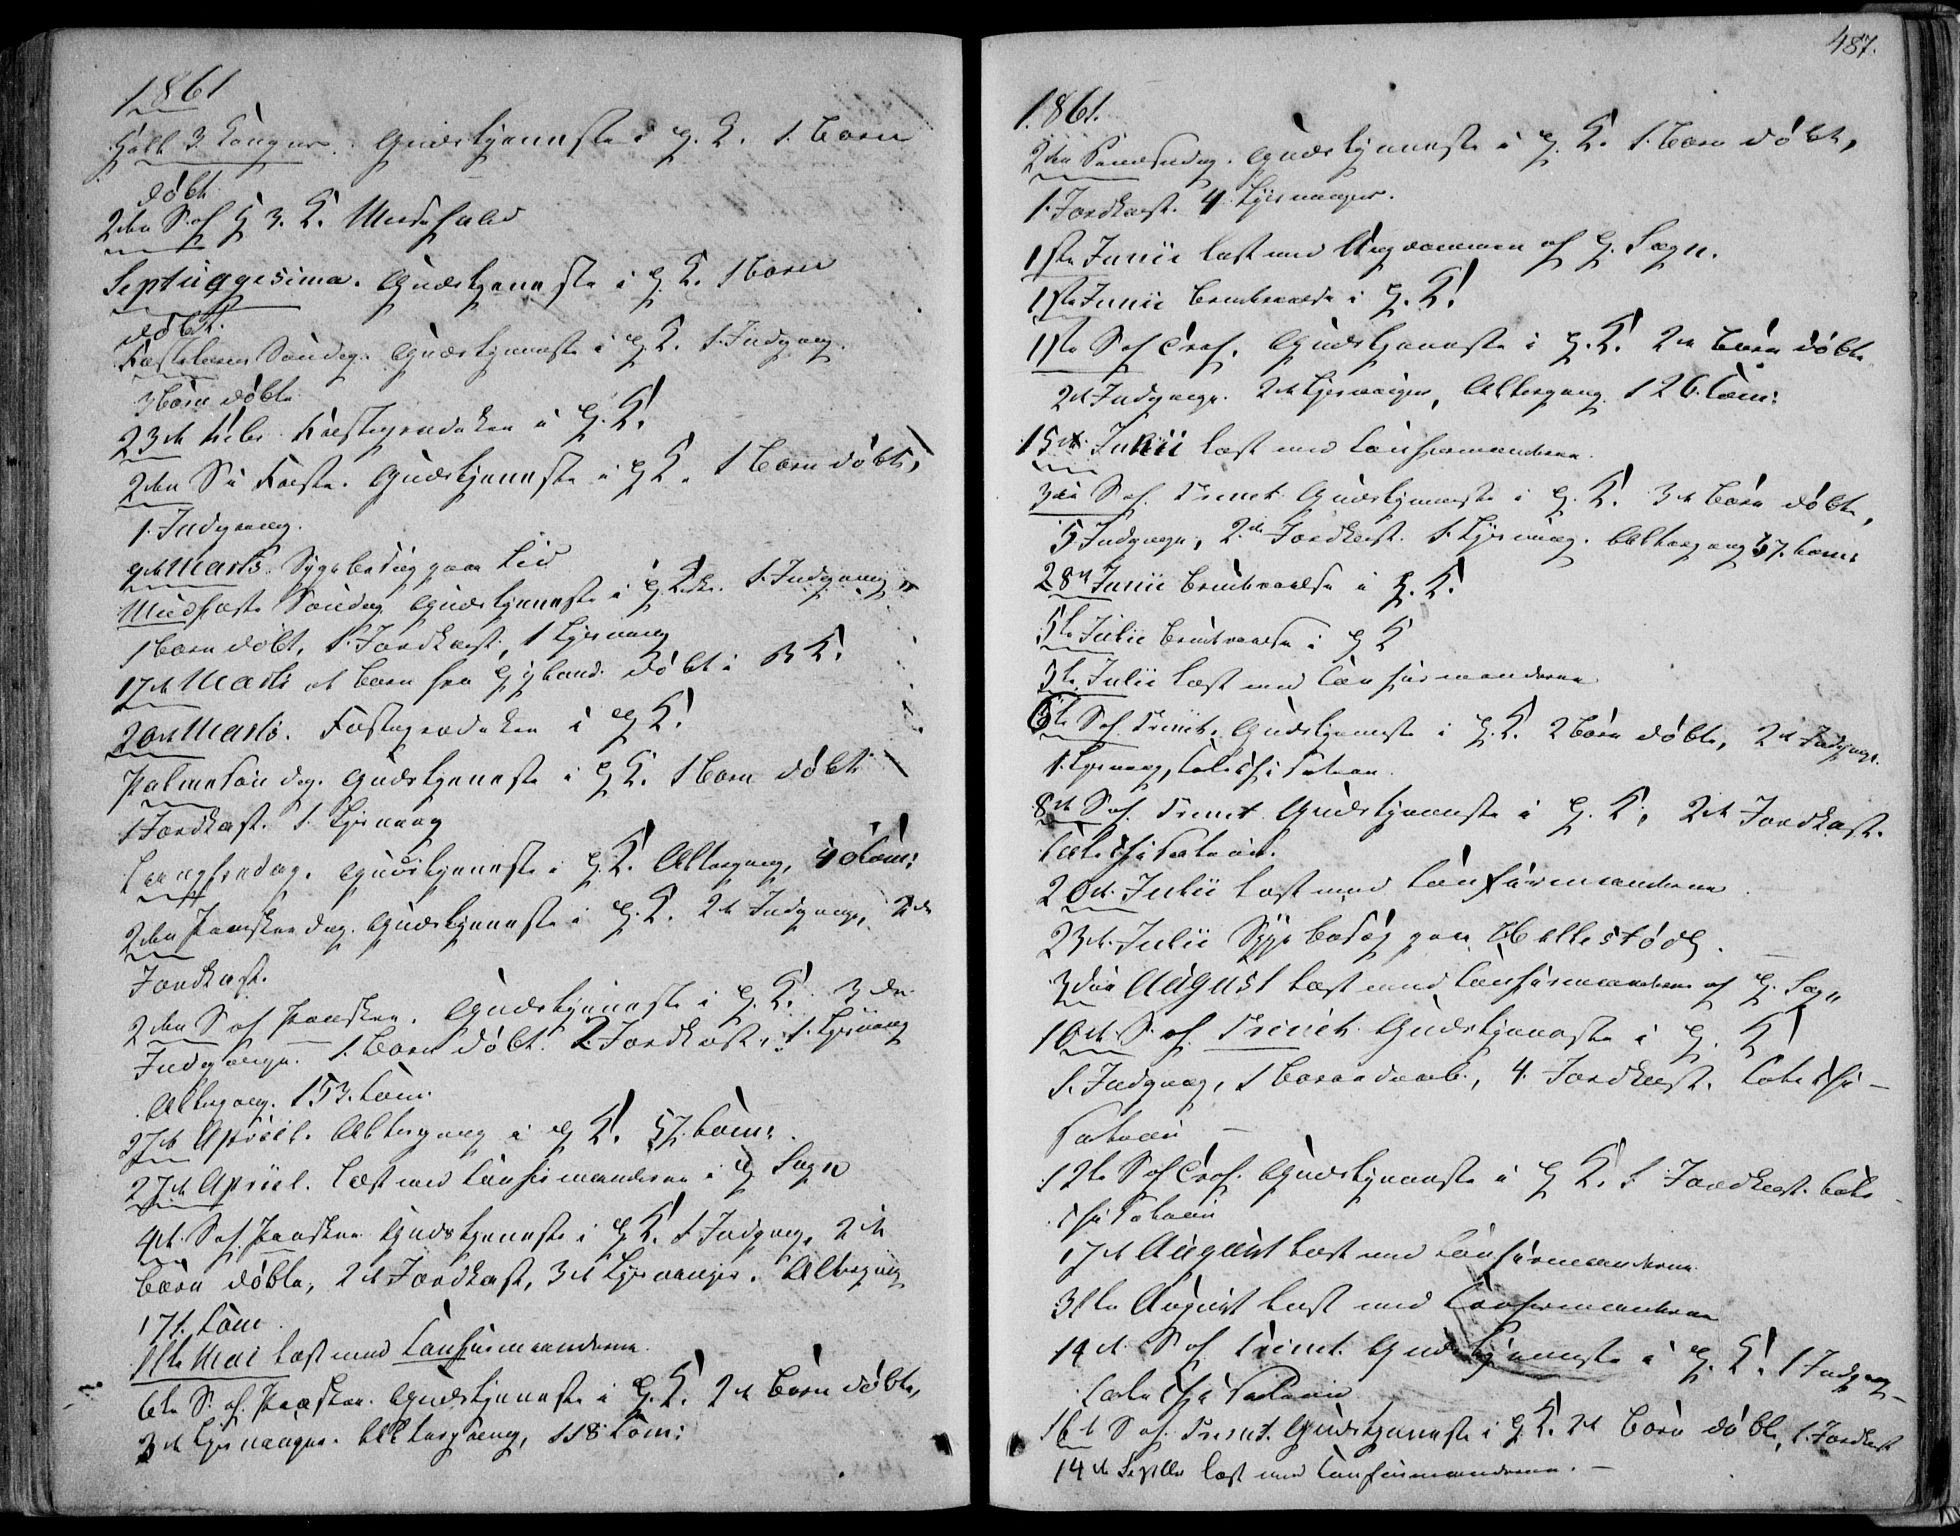 1861
Hell 3 Konger. Gudstjeneste i G. K. 1. Barn
døbt
2den S. ef H 3. K. Messefald
Septuagesima. Gudstjeneste i G. K. 1 Barn
døbt.
Fastelavns Søndag. Gudstjeneste i G. K. 1. Indgang.
3 Børn døbte
23de Febr. Fasteprædiken i G. K.
2den S i Faste. Gudstjeneste i G K. 1 Barn døbt,
1. Indgang.
9de Marts. Sygebesøg paa Lid
Midfaste Søndag Gudstjeneste i G Kirke. 1. Indgang,
1 Barn døbt, 1. Jordkast, 1 Lysning
17de Marts et Barn fra Gyland døbt i B K.
20de Marts. Fasteprædiken i G K.
Palmesøndag. Gudstjeneste i G K. 1 Barn døbt
1 Jordkast. 1. Lysning
Langfredag. Gudstjeneste i G. K. Altergang, 40 Com:
2den Paaskedag. Gudstjeneste i G. K. 2de Indgange, 2de
Jordkast.
2den S. ef Paasken. Gudstjeneste i G. K. 3de
Indgange. 1. Barn døbt. 2 Jordkast, 1. Lysning
Altergang. 153. Com.
27de Apriil. Altergang i G K. 57. Com:
27de Apriil. læst med Confirmanderne i G Sogn
4de S. ef. Paasken Gudstjeneste i G K. 1 Indgang, 2de
Børn døbte, 2de Jordkast, 3de Lysninger. Altergang
171. Com.
11te Mai læst med Confirmanderne.
6te S. ef. Paasken. Gudstjeneste i G. K. 2de Børn døbte,
3de Lysninger. Altergang, 118 Com:
487.
1861.
2den Pinsedag. Gudstjeneste i G. K. 1. Barn døbt,
1. Jordkast. 4 Lysninger.
1ste Junii læst med Ungdommen af G. Sogn.
1ste Junii Brudevielse i G. K.
1ste S ef Tref. Gudstjeneste i G. K. 2de Børn døbte
2de Indgange. 2de Lysninger, Altergang 126. Com:
15de Junii læst med Confirmanderne.
3die S. ef. Trinit. Gudstjeneste i G. K. 3de Børn døbte,
5 Indgange, 2de Jordkast. 1. Lysning. Altergang 57. Com:
28de Junii Brudevielse i G. K.
5te Julii Brudevielse i G K
5te Julii læst med Confirmanderne
6te S ef. Trinit. Gudstjeneste i G. K. 2 Børn døbte, 2de Indgange.
1. Lysning, Catechisation.
8de S ef. Trinit Gudstjeneste i G. K. 2de Jordkast.
Catechisation.
20de Julii læst med Confirmanderne.
23de Julii Sygebesøg paa Hellestødl.
3die August læst med Confirmanderne af G. Sogn
10de S. ef. Trinit. Gudstjeneste i G. K
1. Indgang, 1 Barnedaab, 4. Jordkast. Catechi-
sation —
12te S ef Tref. Gudstjeneste i G K. 1 Jordkast. Cate-
chisation
17de August læst med Confirmanderne.
31te August læst med Confirmanderne
14de S ef Trinit. Gudstjeneste i G. K. 1 Indgang
Catechisation
16de S ef. Trinit. Gudstjeneste i G. K. 2de Børn døbte, 1. Jordkast
14de Septbr læst med Confirmanderne. —